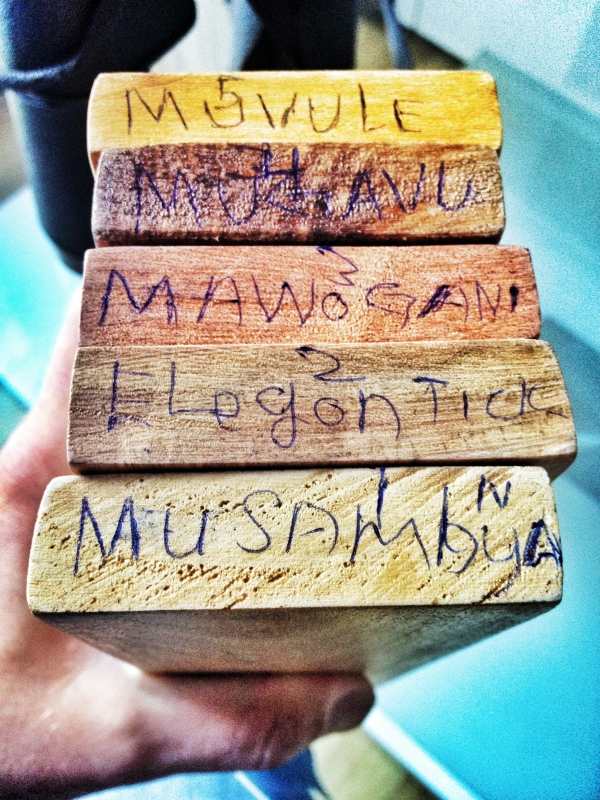 5
MUVULE
4
MUGAVU
3
MAWOGANI
2
ELegon TICK
1
MUSAMbyA
N